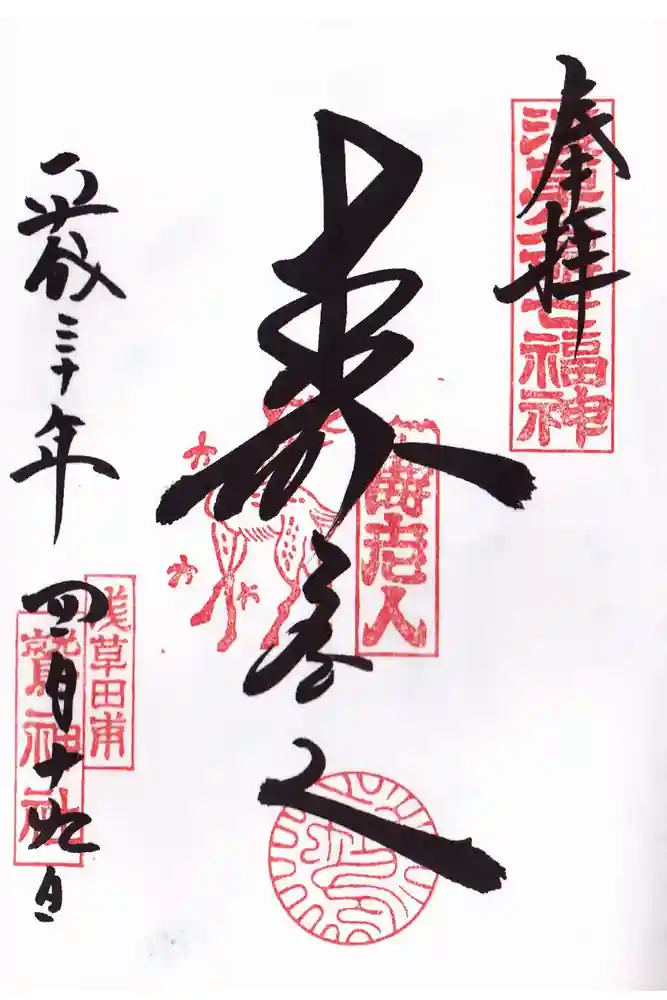 奉拝
浅草名所七福神
寿老人
壽老人
平成三十年四月十九日
浅草田甫
鷲神社